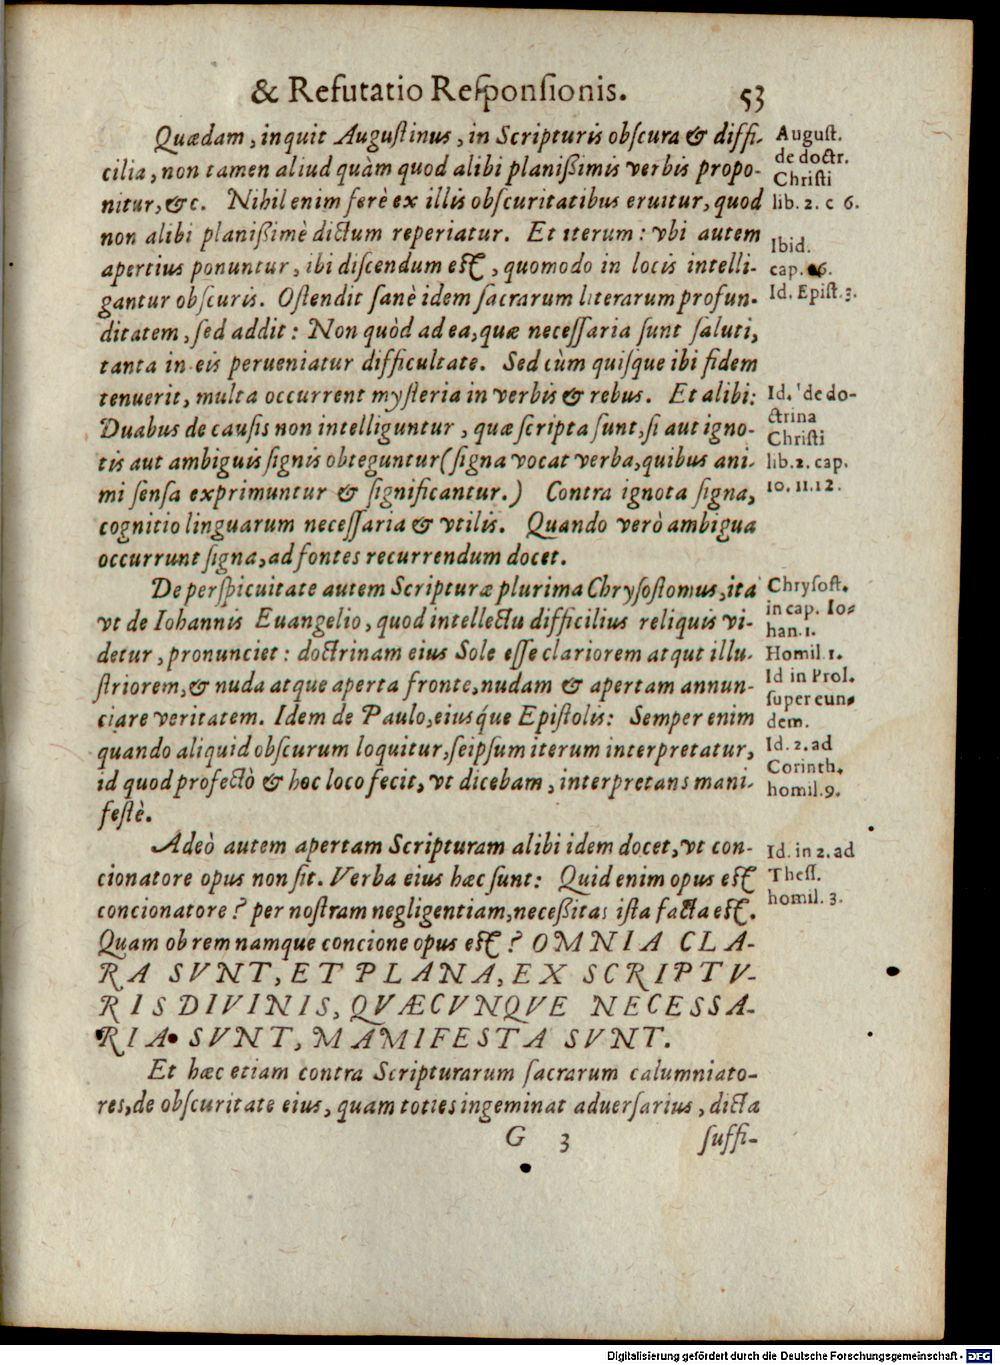 & Refutatio Reſponſionis. 53
Quædam, inquit Auguſtinus, in Scripturis obſcura & diffi-
cilia, non tamen aliud quàm quod alibi planißimis verbis propo-
nitur, &c. Nihil enim ferè ex illis obſcuritatibus eruitur, quod
non alibi planißimè dictum reperiatur. Et iterum: vbi autem
apertius ponuntur, ibi diſcendum eſt, quomodo in locis intelli-
gantur obſcuris. Oſtendit ſanè idem ſacrarum literarum profun-
ditatem, ſed addit: Non quòd ad ea, quæ neceſſaria ſunt ſaluti,
tanta in eis perueniatur difficultate. Sed cùm quiſque ibi fidem
tenuerit, multa occurrent myſteria in verbis & rebus. Et alibi:
Duabus de cauſis non intelliguntur, quæ ſcripta ſunt, ſi aut igno-
tis aut ambiguis ſignis obteguntur (ſigna vocat verba, quibus ani-
mi ſenſa exprimuntur & ſignificantur.) Contra ignota ſigna,
cognitio linguarum neceſſaria & vtilis. Quando verò ambigua
occurrunt ſigna, ad fontes recurrendum docet.
De perſpicuitate autem Scripturæ plurima Chryſoſtomus, ita
vt de Iohannis Euangelio, quod intellectu difficilius reliquis vi-
detur, pronunciet: doctrinam eius Sole eſſe clariorem atqut illu-
ſtriorem, & nuda atque aperta fronte, nudam & apertam annun-
ciare veritatem. Idem de Paulo, eiusq́ue Epiſtolis: Semper enim
quando aliquid obſcurum loquitur, ſeipſum iterum interpretatur,
id quod profectò & hoc loco fecit, vt dicebam, interpretans mani-
feſtè.
Adeò autem apertam Scripturam alibi idem docet, vt con-
cionatore opus non ſit. Verba eius hæc ſunt: Quid enim opus eſt
concionatore? per noſtram negligentiam, neceßitas iſta facta eſt.
Quam ob rem namque concione opus eſt? OMNIA CLA-
RA SVNT, ET PLANA, EX SCRIPTV-
RIS DIVINIS, QVÆCVNQVE NECESSA-
RIA SVNT, MAMIFESTA SVNT.
Et hæc etiam contra Scripturarum ſacrarum calumniato-
res, de obſcuritate eius, quam toties ingeminat aduerſarius, dicta
G 3 ſuffi-
Auguſt.
de doctr.
Chriſti
lib. 2. c 6.
Ibid.
cap. 26.
Id. Epiſt. 3.
Id. de do-
ctrina
Chriſti
lib. 2. cap.
10. 11. 12.
Chryſoſt.
in cap. Io-
han. 1.
Homil. 1.
Id in Prol.
ſuper eun-
dem.
Id. 2. ad
Corinth.
homil. 9.
Id. in 2. ad
Theſſ.
homil. 3.
Digitalisierung gefördert durch die Deutsche Forschungsgemeinschaft - DFG